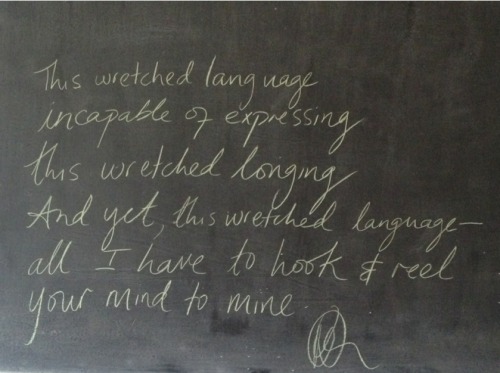 This wretched language
incapable of expressing
this wretched longing
And yet, this wretched language—
all I have to hook & reel
your mind to mine